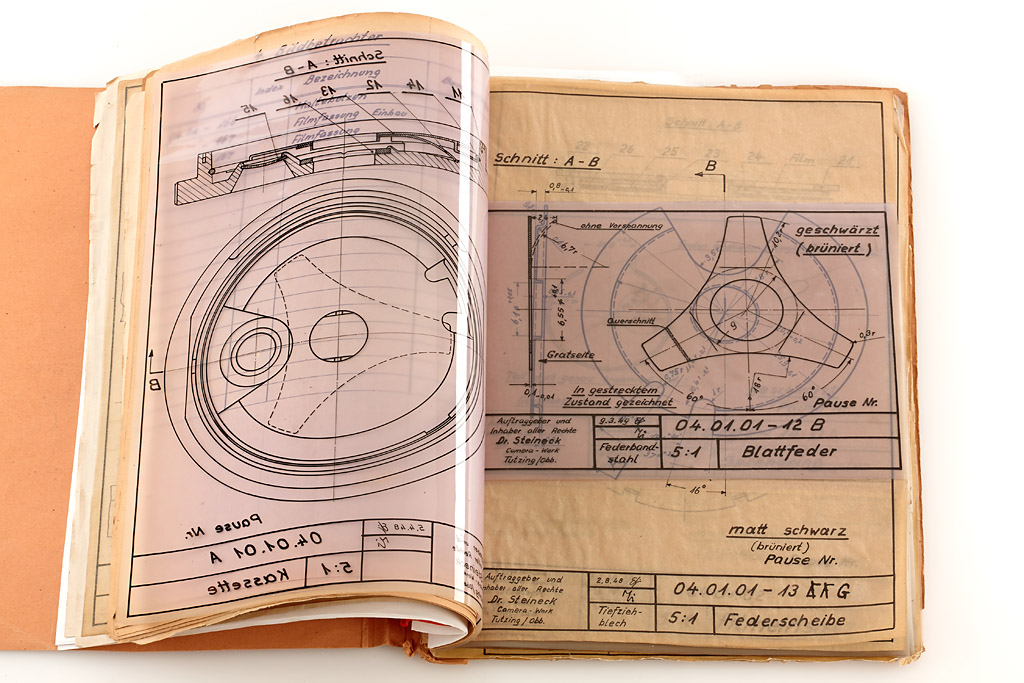 Bildbetrachter
Schnitt: A-B
Bezeichnung
Index
Haltebolzen
Filmfassung Einbau
Filmfassung
15
16
13
12
14
11
B
Pause Nr.
04.01.01 A
5.4.48
5:1
Kassette
Schnitt: A-B
22 26 25 23 24 Film 21
Schnitt: A-B
B
0,8-0,1
ohne Vorspannung
6,7r
geschwärzt
(brüniert)
10,5r
6,55⌀
Querschnitt
g
0,3r
Gratseite
0,1-0,01
18r
60°
60°
In gestrecktem
Zustand gezeichnet
Pause Nr.
Auftraggeber und
Inhaber aller Rechte
Dr. Steineck
Camera-Werk
Tutzing/Obb.
9.3.49
Federband-
stahl
04.01.01-12 B
5:1
Blattfeder
16°
matt schwarz
(brüniert)
Pause Nr.
Auftraggeber und
Inhaber aller Rechte
Dr. Steineck
Camera-Werk
Tutzing/Obb.
2.8.48
Tiefzieh-
blech
04.01.01-13 G
5:1
Federscheibe